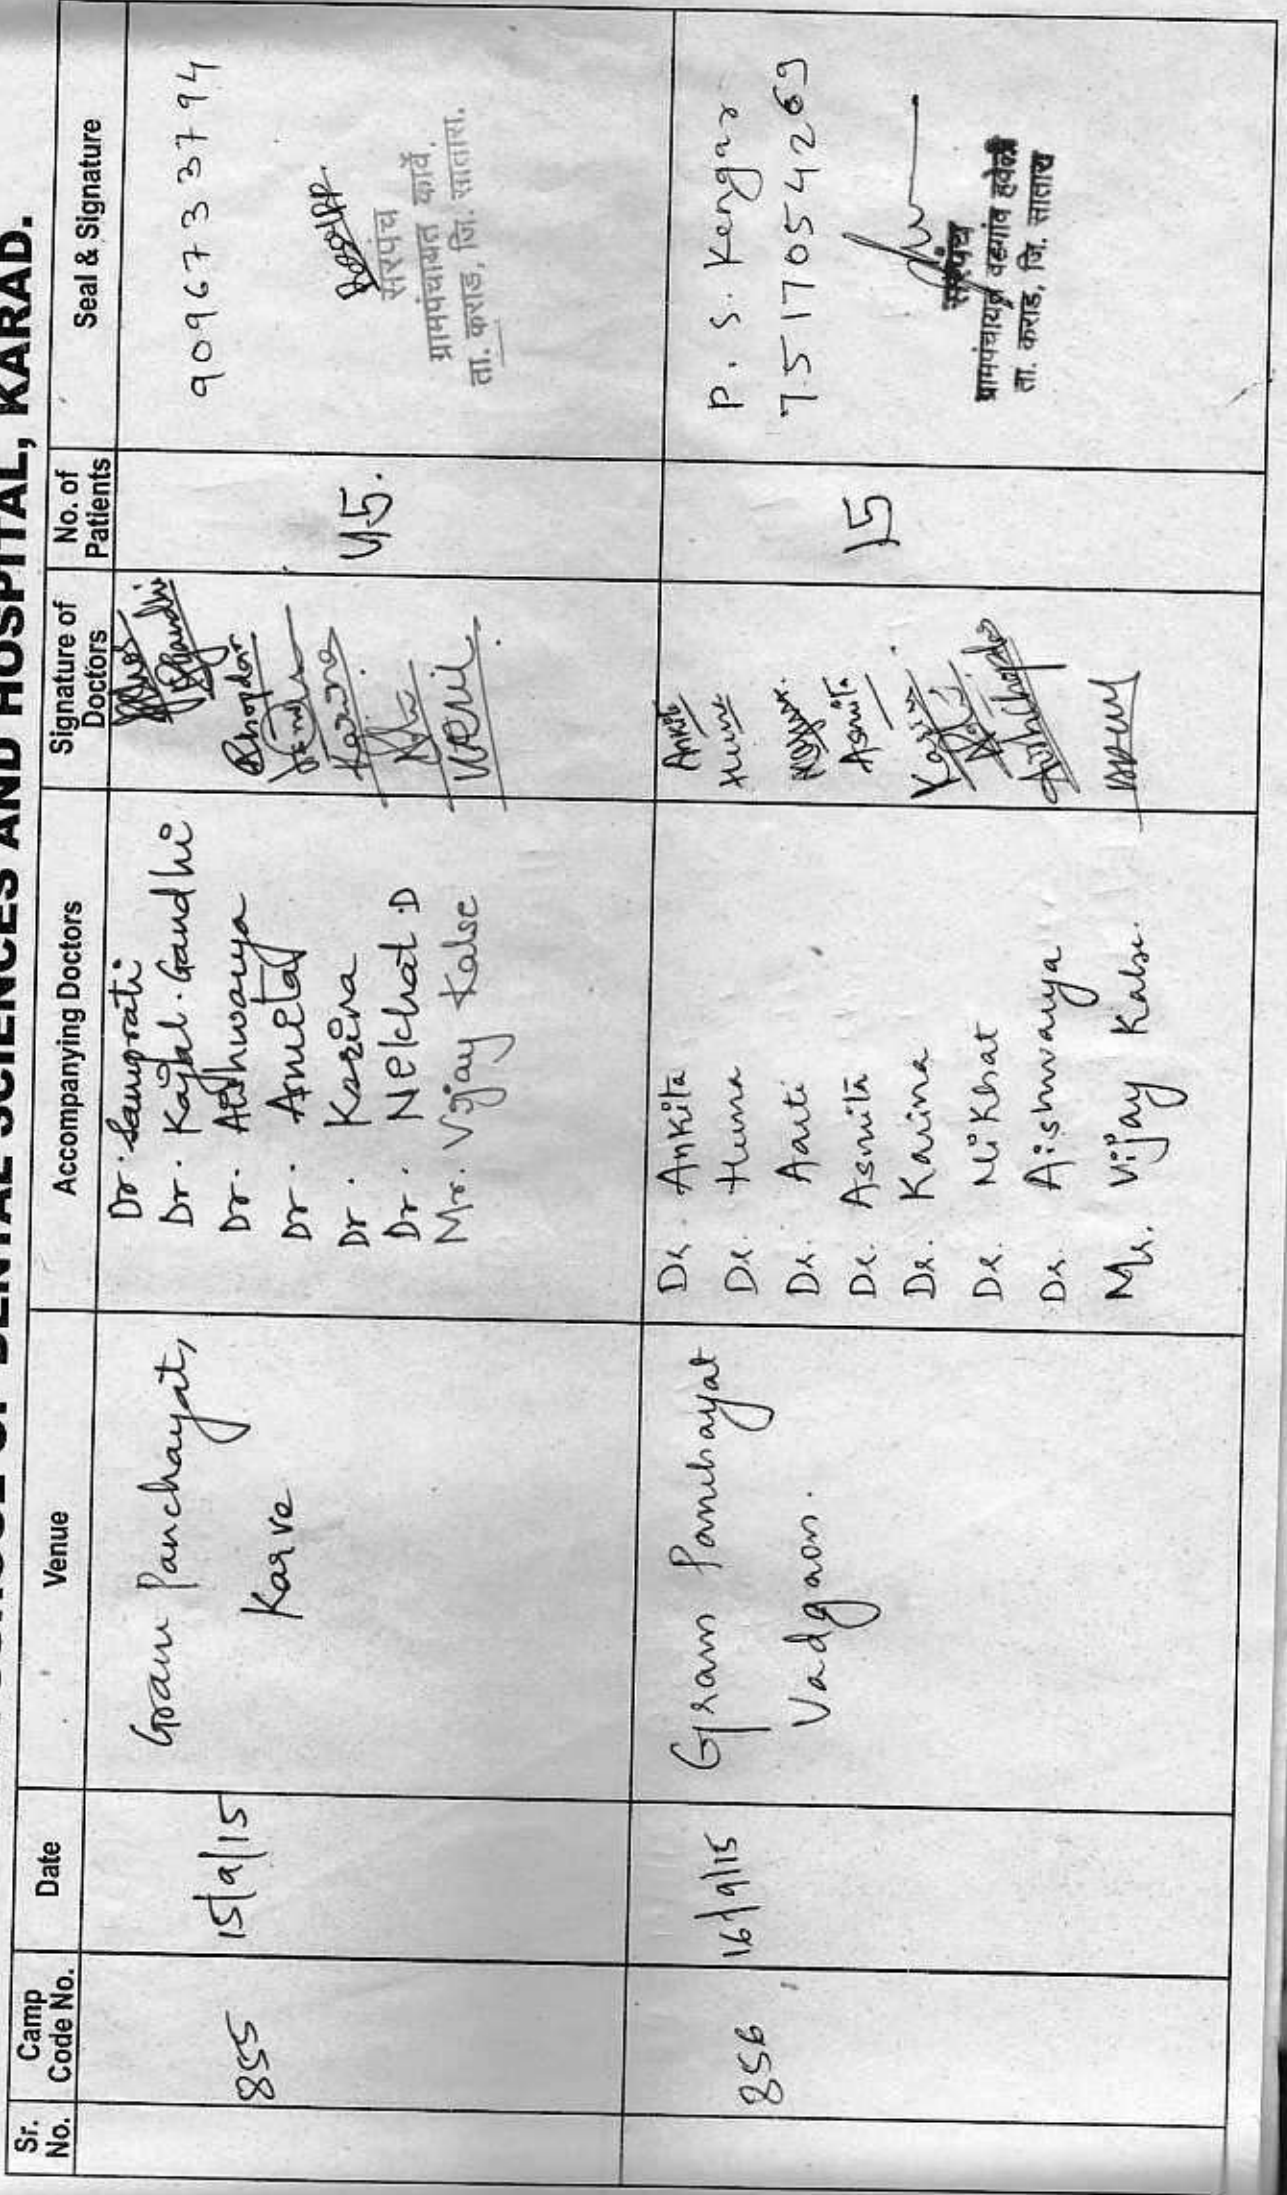 OF DENTAL SCIENCES AND HOSPITAL, KARAD.
Sr. No.
Camp Code No.
Date
Venue
Accompanying Doctors
Signature of Doctors
No. of Patients
Seal & Signature
855
15/9/15
Gram Panchayat,
Karve
Dr. Samprati
Dr. Kajal. Gandhi
Dr. Aishwarya
Dr. Asmita
Dr. Karina
Dr. Nekhat D
Mr. Vijay Kalse
Karina
45.
9096733794
सरपंच
ग्रामपंचायत कार्वे,
ता. कराड, जि. सातारा.
856
16/9/15
Gram Panchayat
Vadgaon.
Dr. Ankita
Dr. Huma
Dr. Aarti
Dr. Asmita
Dr. Karina
Dr. Nikhat
Dr. Aishwarya
Mr. Vijay Kalse.
Ankita
Huma
Asmita
Karina
15
P. S. Kengar
7517054269
सरपंच
ग्रामपंचायत वडगांव हवेली
ता. कराड, जि. सातारा